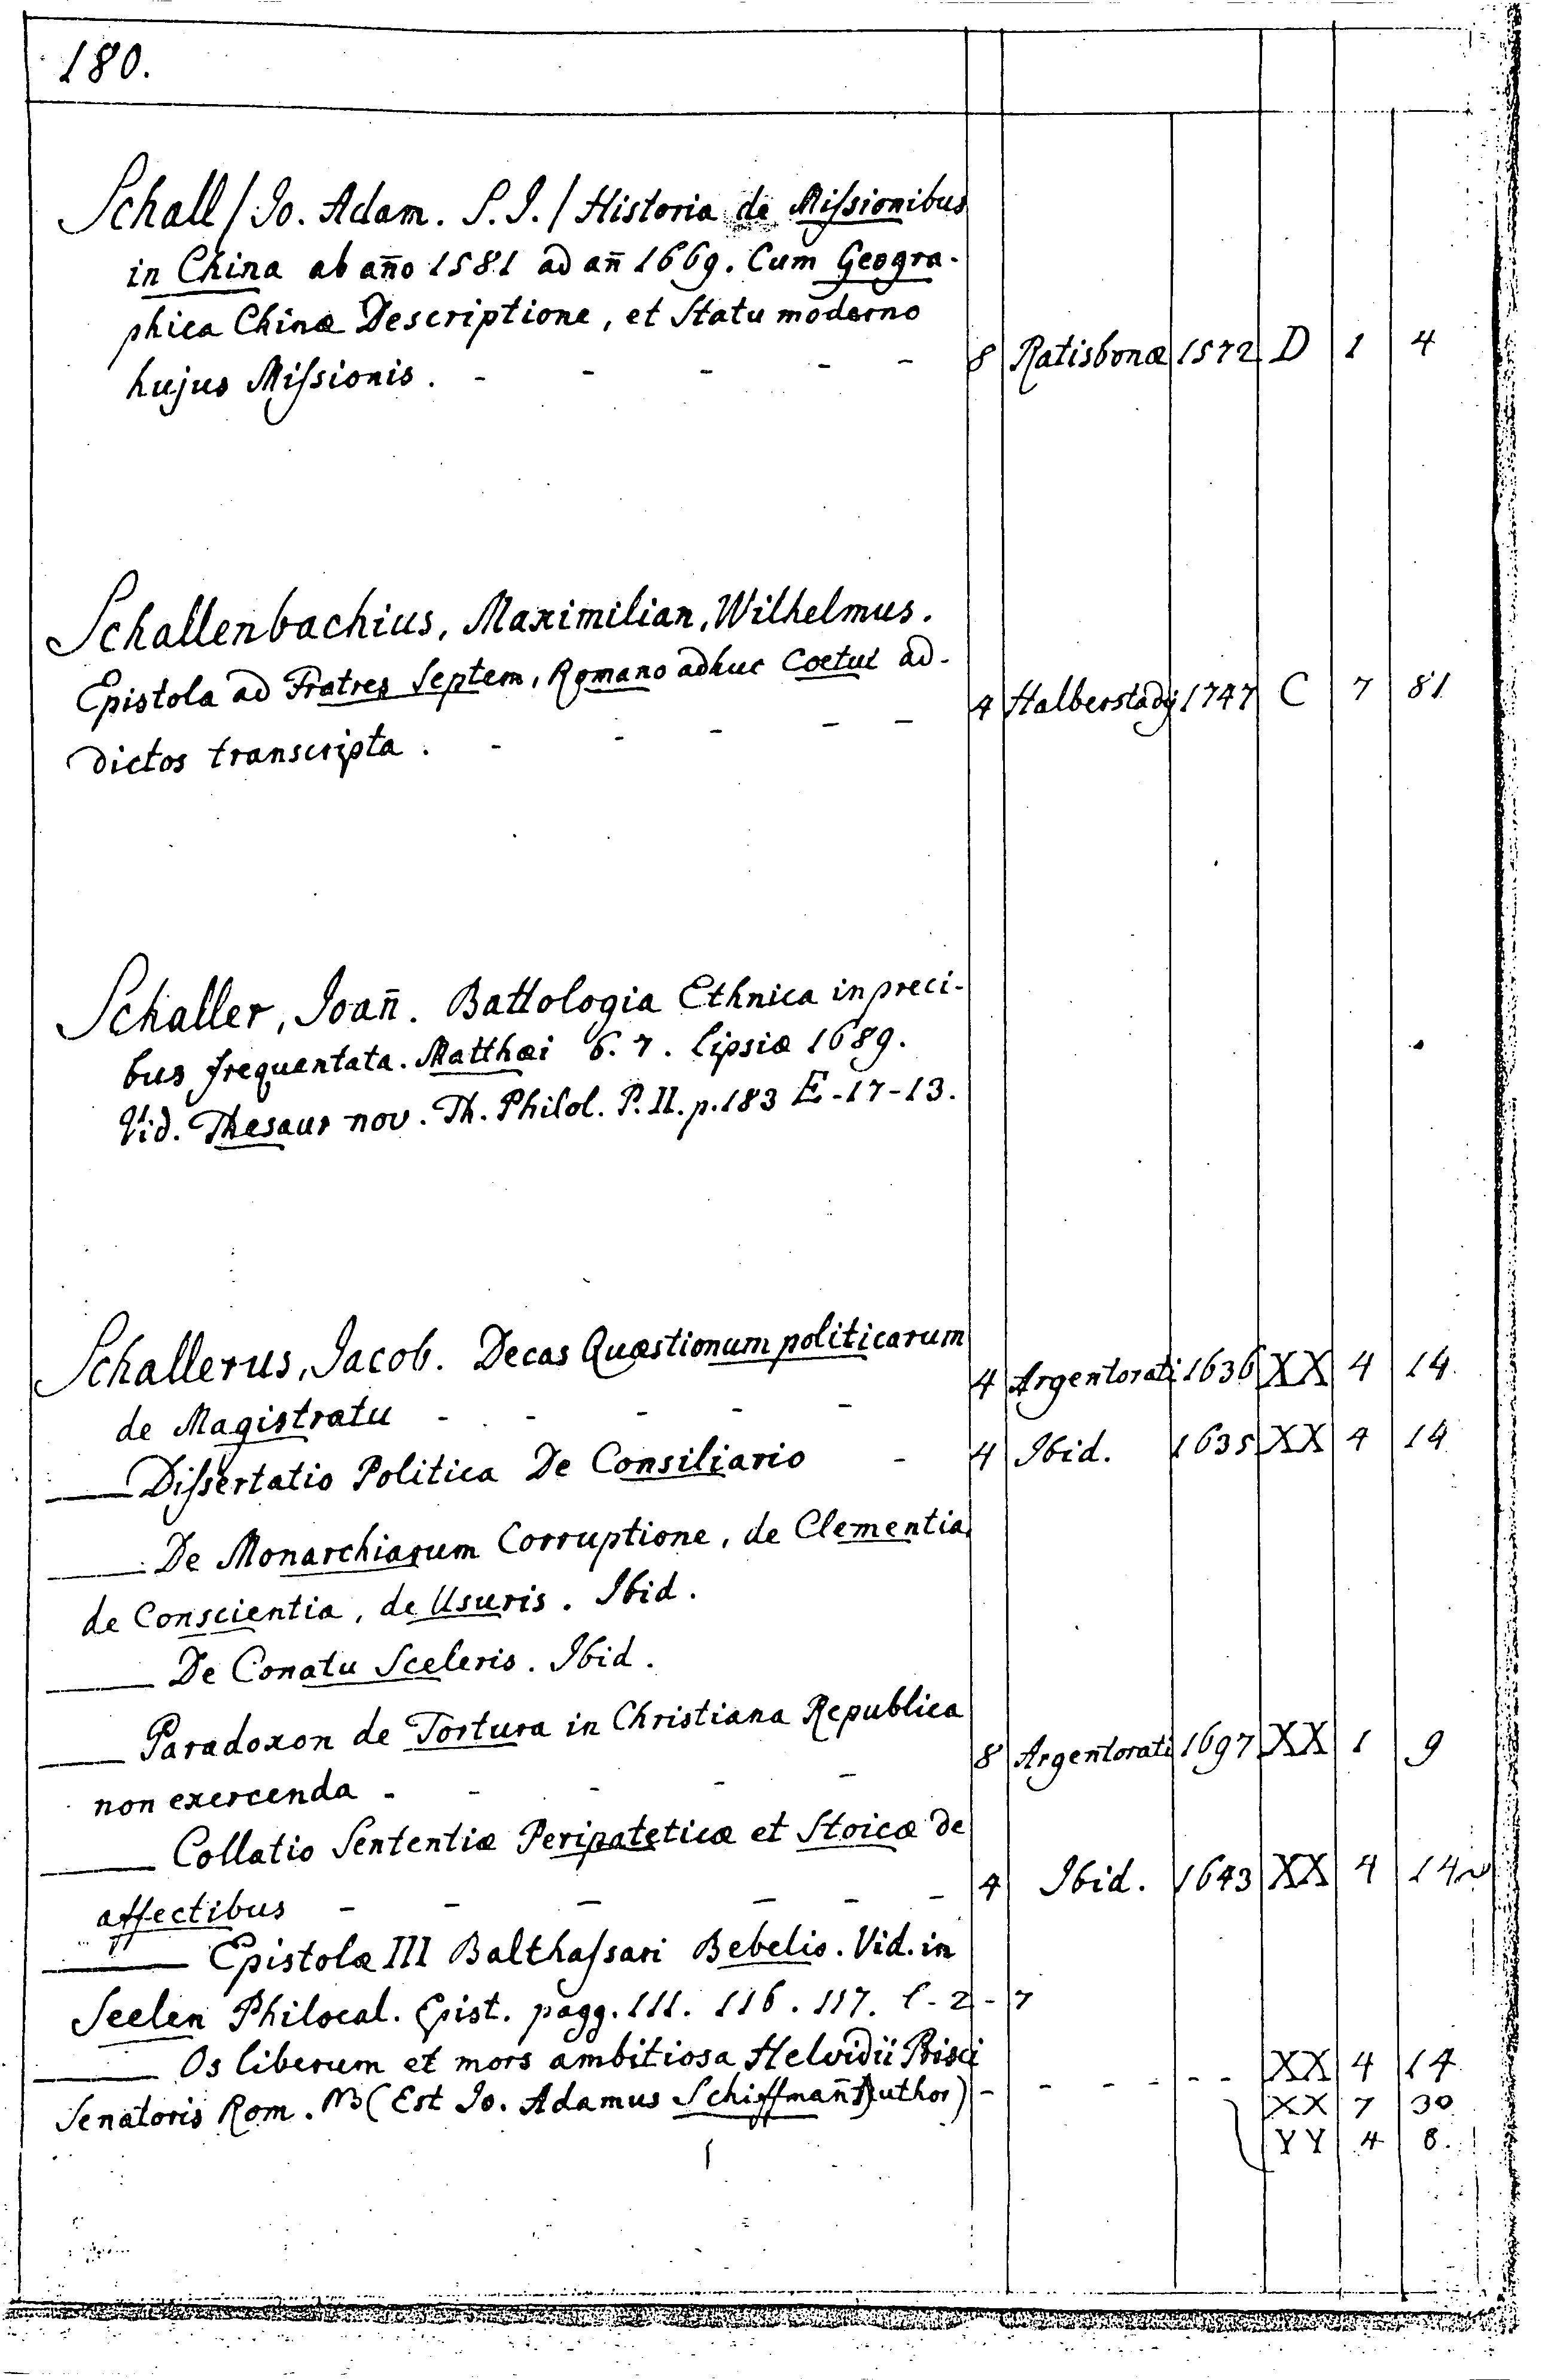 180.
Schall / Jo. Adam. S. J. / Historia de Miſsionibus
in China ab año 1581 ad añ 1669. Cum Geogra-
phica Chinæ Descriptione, et Statu moderno
hujus Miſsionis. - - - - - 8 Ratisbonæ 1572 D 1 4
Schallenbachius, Maximilian, Wilhelmus.
Epistola ad Fratres Septem, Romano adhuc Coetui ad-
dictos transcripta. - - - - - 4 Halberstadij 1747 C 7 81
Schaller, Joañ. Battologia Ethnica in preci-
bus frequentata. Matthæi 6. 7. Lipsiæ 1689.
Vid. Thesaur nov. Th. Philol. P. II. p. 183 E-17-13.
Schallerus, Jacob. Decas Quæstionum politicarum
de Magistratu - - - - - 4 Argentorati 1636 XX 4 14.
—— Diſsertatio Politica De Consiliario - 4 Ibid. 1635 XX 4 14
—— De Monarchiarum Corruptione, de Clementia
de Conscientia, de Usuris. Ibid.
—— De Conatu Sceleris. Ibid.
—— Paradoxon de Tortura in Christiana Republica
non exercenda - - - - - 8 Argentorati 1697 XX 1 9
—— Collatio Sententiæ Peripateticæ et Stoicæ de
affectibus - - - - - - 4 Ibid. 1643 XX 4 14
—— Epistolæ III Balthaſsari Bebelio. Vid. in
Seelen Philocal. Epist. pagg. 111. 116. 117. C-2-7
—— Os liberum et mors ambitiosa Helvidii Prisci XX 4 14
Senatoris Rom. NB (Est Jo. Adamus Schiffmañ Author) - - - - - - XX 7 30
YY 4 8.